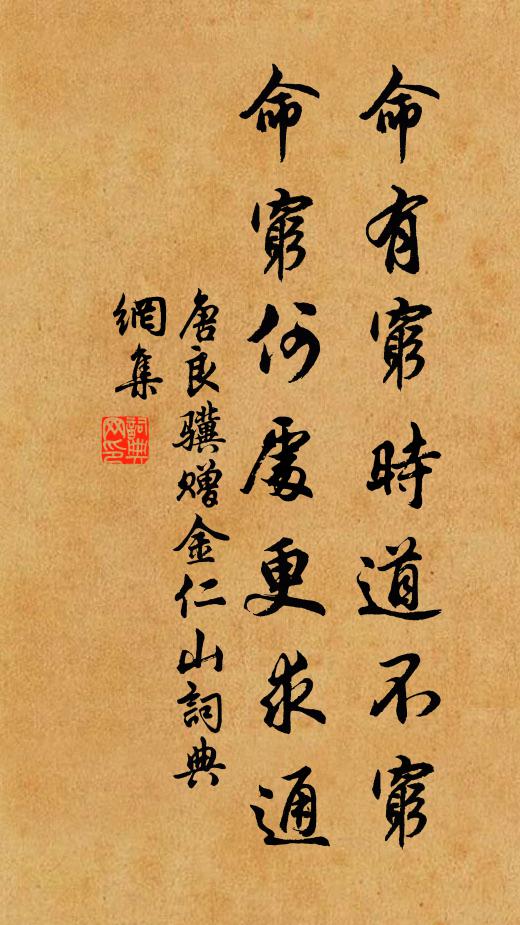 命有窮時道不窮
命窮何處更求通
唐良驥赠金仁山詞典
網集
詞典
网印